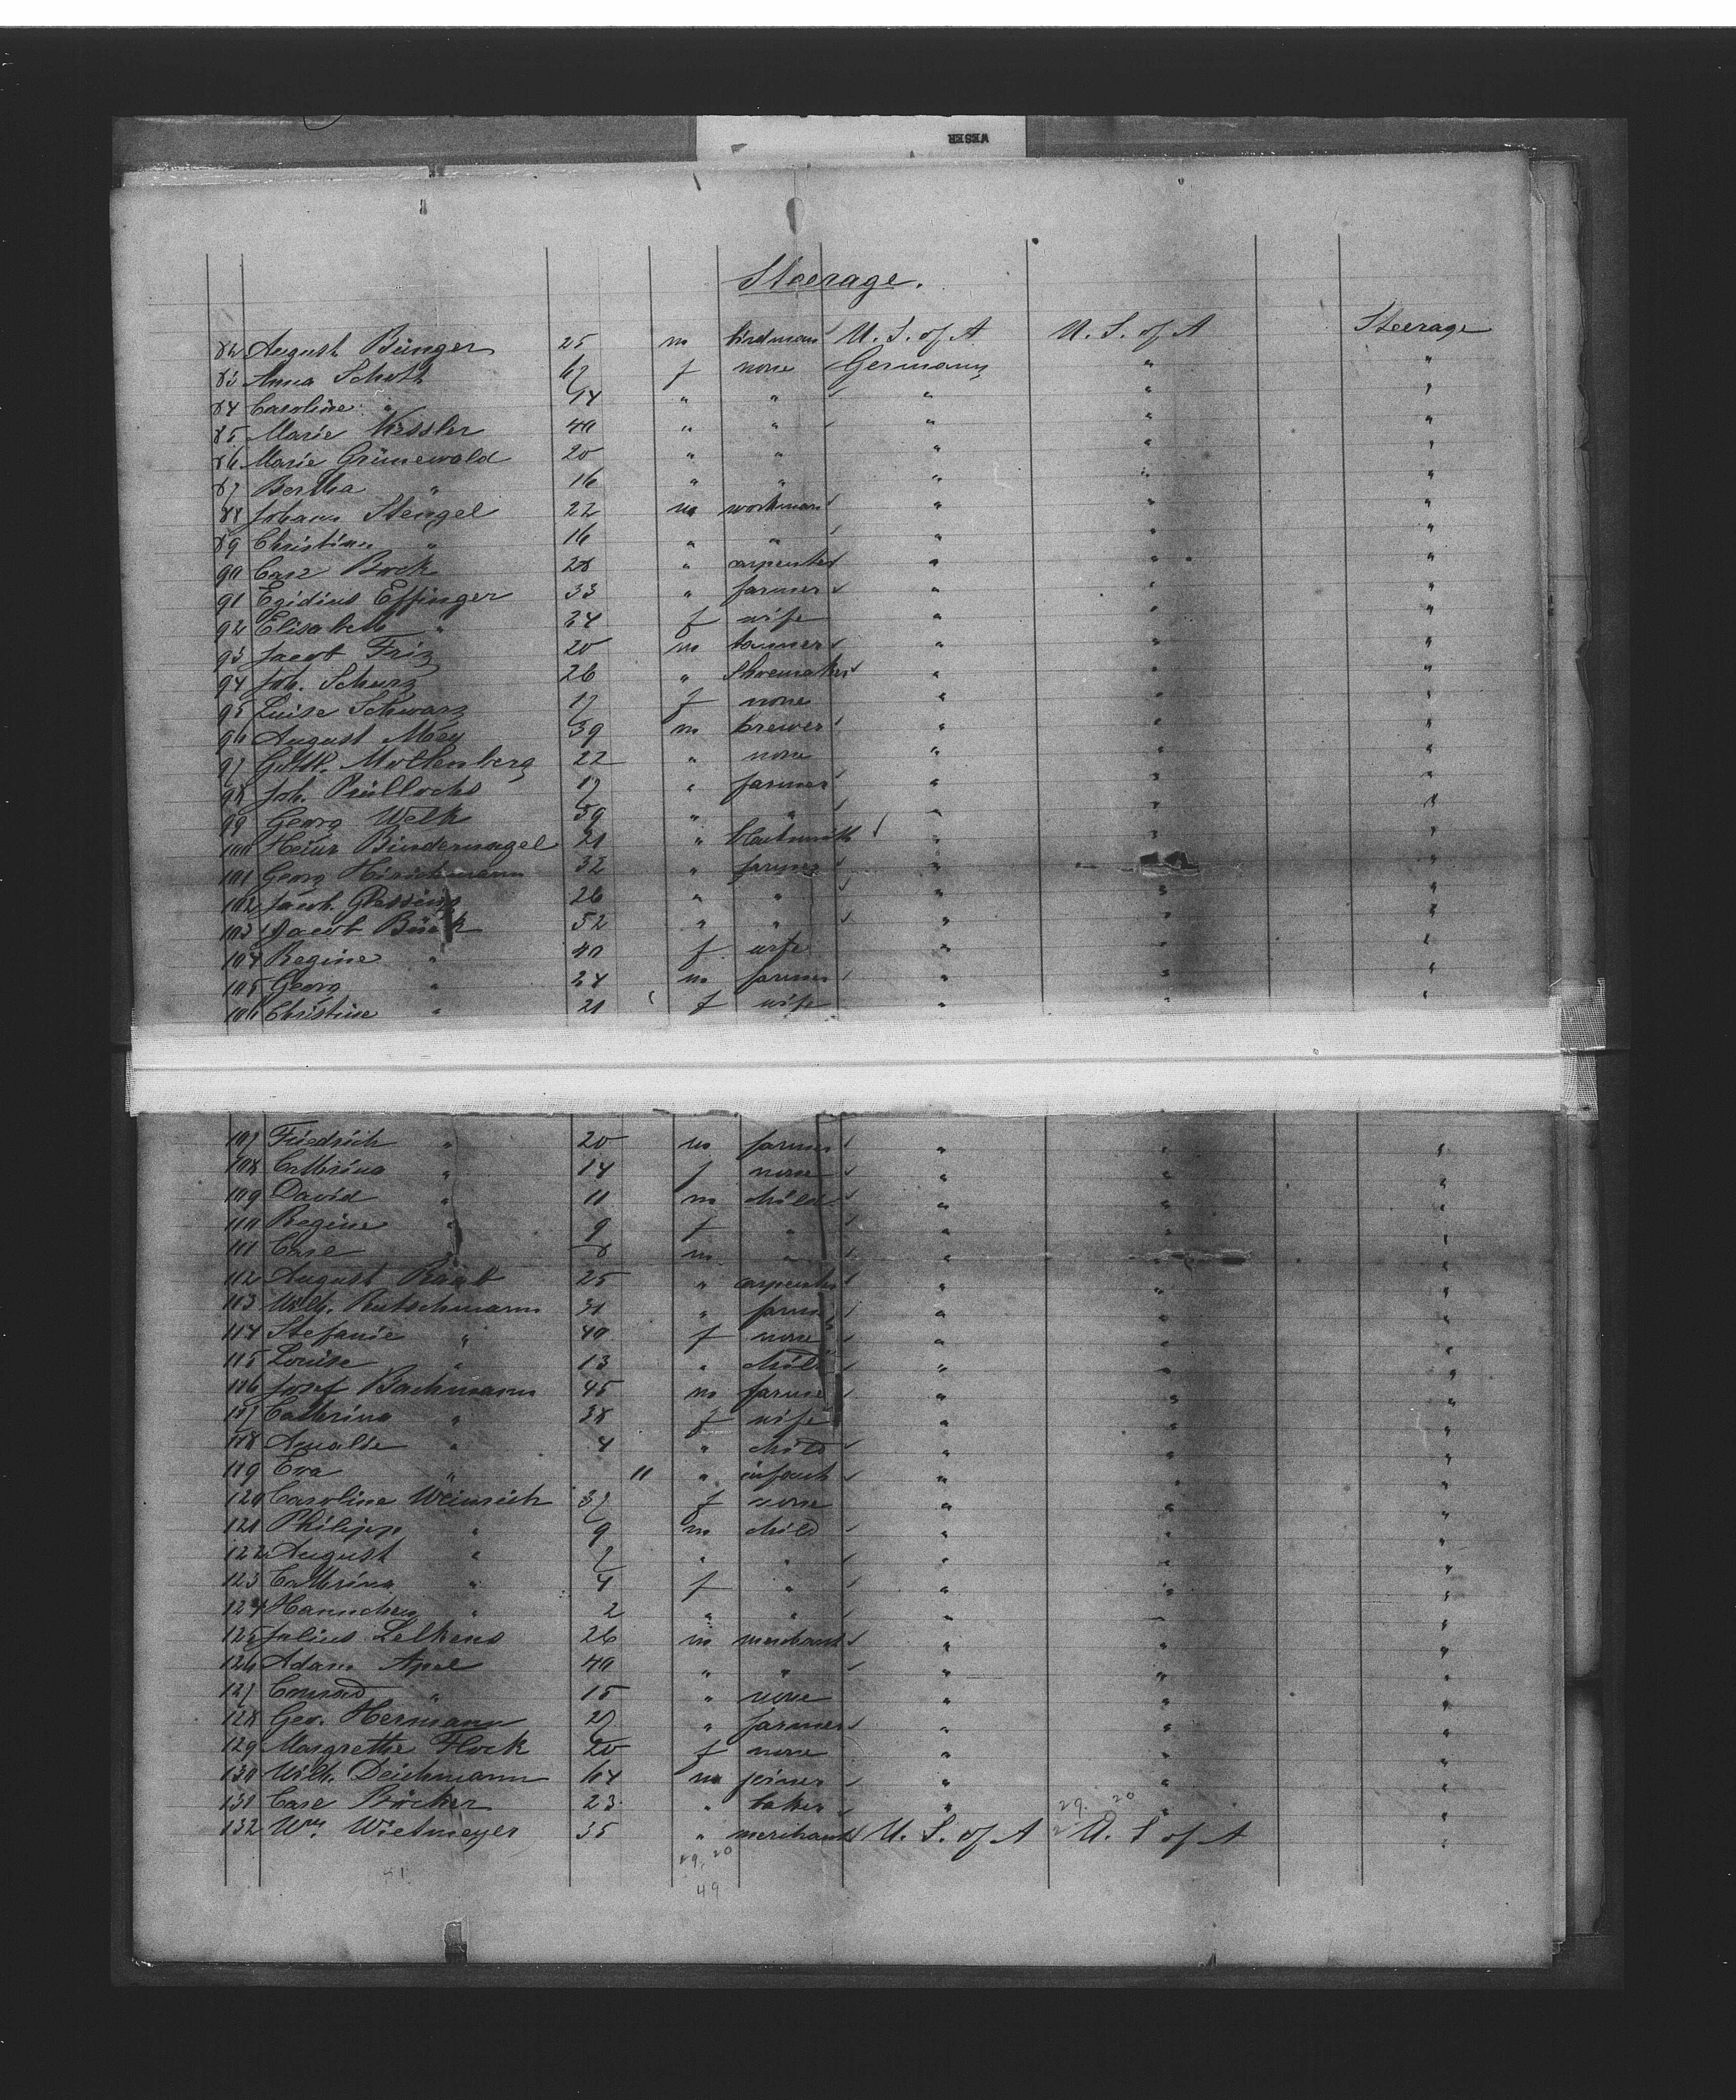 WESER
Steerage.
82 August Bünger 25 m birdman U. S. of A U. S. of A Steerage
83 Anna Schott 67 f none Germany " "
84 Caroline " 14 " " " " "
85 Marie Kessler 40 " " " " "
86 Marie Grünewald 20 " " " " "
87 Bertha " 16 " " " " "
88 Johann Stengel 22 m workman " " "
89 Christian " 16 " " " " "
90 Carl Bock 28 " carpenter " " "
91 Egidius Effinger 33 " farmer " " "
92 Elisabeth " 24 f wife " " "
93 Jacob Friz 20 m tanner " " "
94 Joh. Schurz 26 " Shoemaker " " "
95 Luise Schwarz 17 f none " " "
96 August Mey 39 m brewer " " "
97 Mollenberg 22 " none " " "
98 Joh. 17 " farmer " " "
99 Georg Welk 59 " " " " "
100 Heinr Bindernagel 21 " blacksmith " " "
101 Georg Hirschmann 32 " farmer " " "
102 Jacob 26 " " " " "
103 Jacob Bück 52 " " " " "
104 Regine " 40 f wife " " "
105 Georg " 24 m farmer " " "
106 Christine " 21 f wife " " "
107 Friedrich " 20 m farmer " " "
108 Cathrina " 14 f none " " "
109 David " 11 m child " " "
110 Regine " 9 f " " " "
111 Carl " 8 m " " " "
112 August Raab 25 " carpenter " " "
113 Wilh. Rutschmann 31 " farmer " " "
114 Stefanie " 40 f none " " "
115 Louise " 13 " child " " "
116 Josef Bachmann 45 m farmer " " "
117 Cathrina " 38 f wife " " "
118 Amalie " 4 " child " " "
119 Eva " 11 " infant " " "
120 Caroline Weinrich 37 f none " " "
121 Philipp " 9 m child " " "
122 August " 7 " " " " "
123 Cathrina " 4 f " " " "
124 Hannchen " 2 " " " " "
125 Julius Lelkens 26 m merchant " " "
126 Adam Apel 40 " " " " "
127 Conrad " 15 " none " " "
128 Geo. Hermann 27 " farmer " " "
129 Margrethe Flock 20 f none " " "
130 Wilh. Deichmann 64 m joiner " " "
131 Carl Böcker 23 " baker " " "
29. 20
132 Wm. Wietmeyer 35 " merchant U. S. of A U. S of A "
29, 20
49